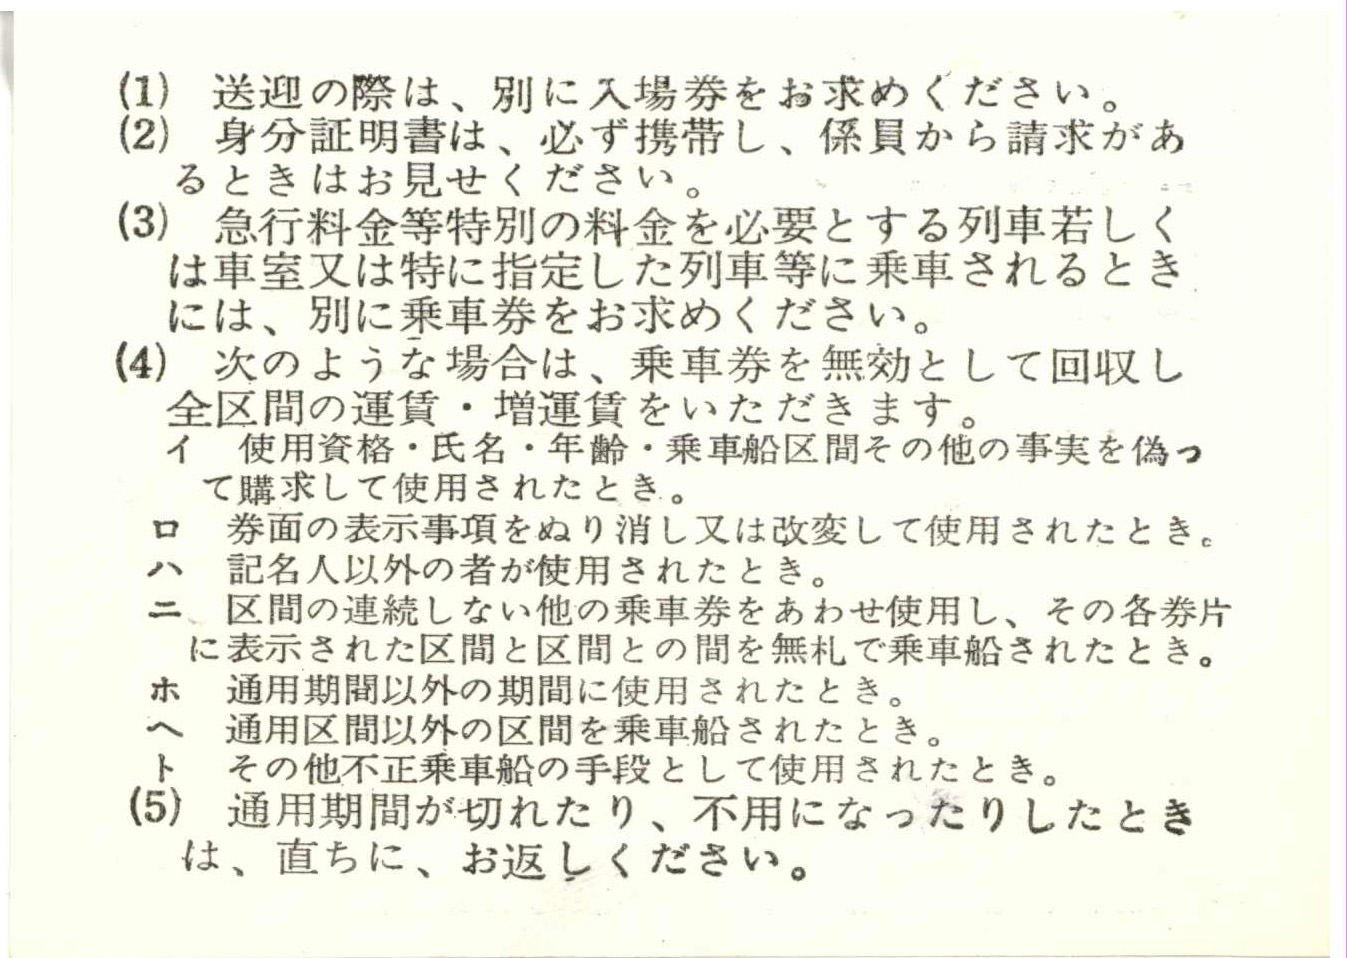 (1) 送迎の際は、別に入場券をお求めください。
(2) 身分証明書は、必ず携帯し、係員から請求があ
るときはお見せください。
(3) 急行料金等特別の料金を必要とする列車若しく
は車室又は特に指定した列車等に乗車されるとき
には、別に乗車券をお求めください。
(4) 次のような場合は、乗車券を無効として回収し
全区間の運賃・増運賃をいただきます。
イ 使用資格・氏名・年齢・乗車船区間その他の事実を偽っ
て購求して使用されたとき。
ロ 券面の表示事項をぬり消し又は改変して使用されたとき。
ハ 記名人以外の者が使用されたとき。
ニ 区間の連続しない他の乗車券をあわせ使用し、その各券片
に表示された区間と区間との間を無札で乗車船されたとき。
ホ 通用期間以外の期間に使用されたとき。
ヘ 通用区間以外の区間を乗車船されたとき。
ト その他不正乗車船の手段として使用されたとき。
(5) 通用期間が切れたり、不用になったりしたとき
は、直ちに、お返しください。